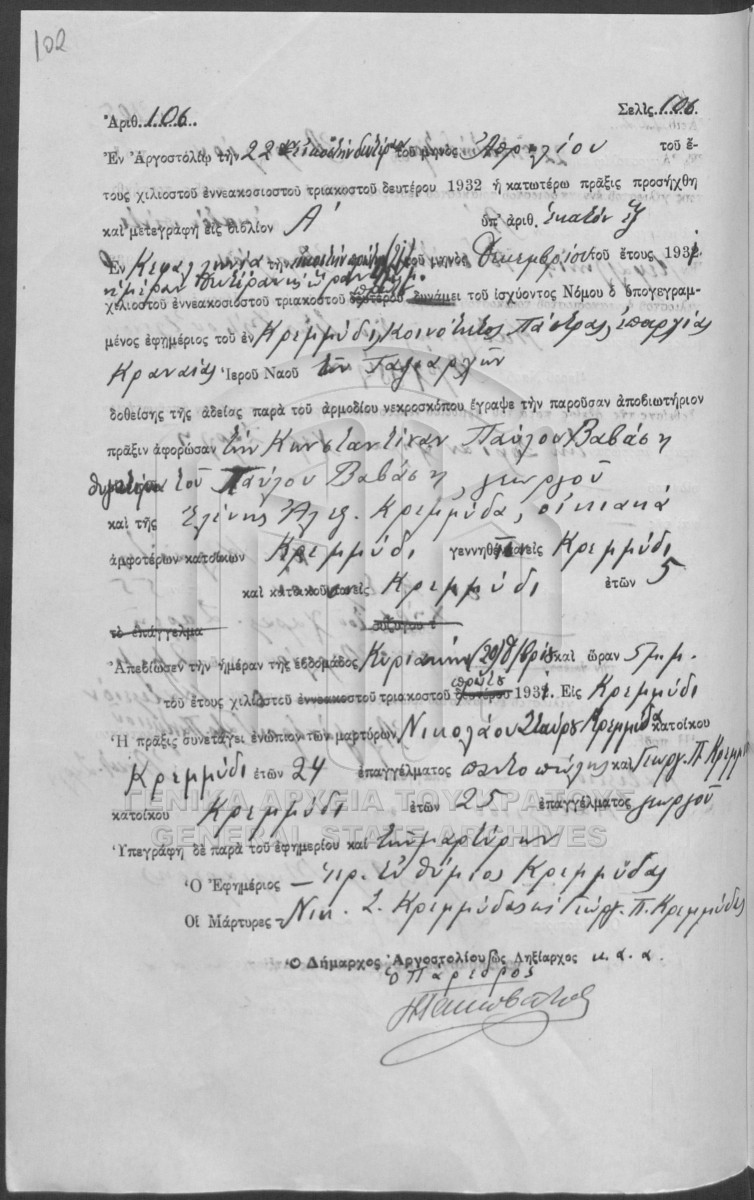 102
Ἀριθ. 106 Σελὶς 106
Ἐν Ἀργοστολίῳ τὴν 22 εἰκοστὴν δευτέραν τοῦ μηνὸς Ἀπριλίου τοῦ ἔ-
τους χιλιοστοῦ ἐννεακοσιοστοῦ τριακοστοῦ δευτέρου 1932 ἡ κατωτέρω πρᾶξις προσήχθη
καὶ μετεγράφη εἰς βιβλίον Α' ὑπ' ἀριθ. ἑκατὸν ἓξ
Ἐν Κεφαλληνίᾳ τὴν εἰκοστὴν πρώτην τοῦ μηνὸς Δεκεμβρίου τοῦ ἔτους 1931
ἡμέραν Δευτέραν ὥραν π.μ.
χιλιοστοῦ ἐννεακοσιοστοῦ τριακοστοῦ πρώτου δευτέρου δυνάμει τοῦ ἰσχύοντος Νόμου ὁ ὑπογεγραμ-
μένος ἐφημέριος τοῦ ἐν Κρεμμύδι, Κοινότητος Πάστρας, ἐπαρχίας
Κραναίας Ἱεροῦ Ναοῦ τῶν Ταξιαρχῶν
δοθείσης τῆς ἀδείας παρὰ τοῦ ἁρμοδίου νεκροσκόπου ἔγραψε τὴν παροῦσαν ἀποβιωτήριον
πρᾶξιν ἀφορῶσαν τὴν Κωνσταντίναν Παύλου Βαβάση
θυγατέρα τοῦ Παύλου Βαβάση, γεωργοῦ
καὶ τῆς Ἑλένης Ἀλεξ. Κρεμμύδα, οἰκιακά
ἀμφοτέρων κατοίκων Κρεμμύδι γεννηθεῖσαν εἰς Κρεμμύδι
καὶ κατοικοῦσαν εἰς Κρεμμύδι ἐτῶν 5
τὸ ἐπάγγελμα συζύγου
Ἀπεβίωσεν τὴν ἡμέραν τῆς ἑβδομάδος Κυριακὴν (20) 8/βρίου καὶ ὥραν 5 μ.μ.
τοῦ ἔτους χιλιοστοῦ ἐννεακοστοῦ τριακοστοῦ πρώτου δευτέρου 1931. Εἰς Κρεμμύδι
Ἡ πρᾶξις συνετάγει ἐνώπιον τῶν μαρτύρων Νικολάου Σταύρου Κρεμμύδα κατοίκου
Κρεμμύδι ἐτῶν 24 ἐπαγγέλματος παντοπώλης καὶ Γεωργ. Π. Κρεμμύδα
κατοίκου Κρεμμύδι ἐτῶν 25 ἐπαγγέλματος γεωργοῦ
Ὑπεγράφη δὲ παρὰ τοῦ ἐφημερίου καὶ τῶν μαρτύρων
Ὁ Ἐφημέριος – Ἱερ. Εὐθύμιος Κρεμμύδας
Οἱ Μάρτυρες Νικ. Σ. Κρεμμύδας καὶ Γεώργ. Π. Κρεμμύδας
Ὁ Δήμαρχος Ἀργοστολίου ὡς Ληξίαρχος κ.α.α.
ὁ Πάρεδρος
ΓΕΝΙΚΑ ΑΡΧΕΙΑ ΤΟΥ ΚΡΑΤΟΥΣ
GENERAL STATE ARCHIVES